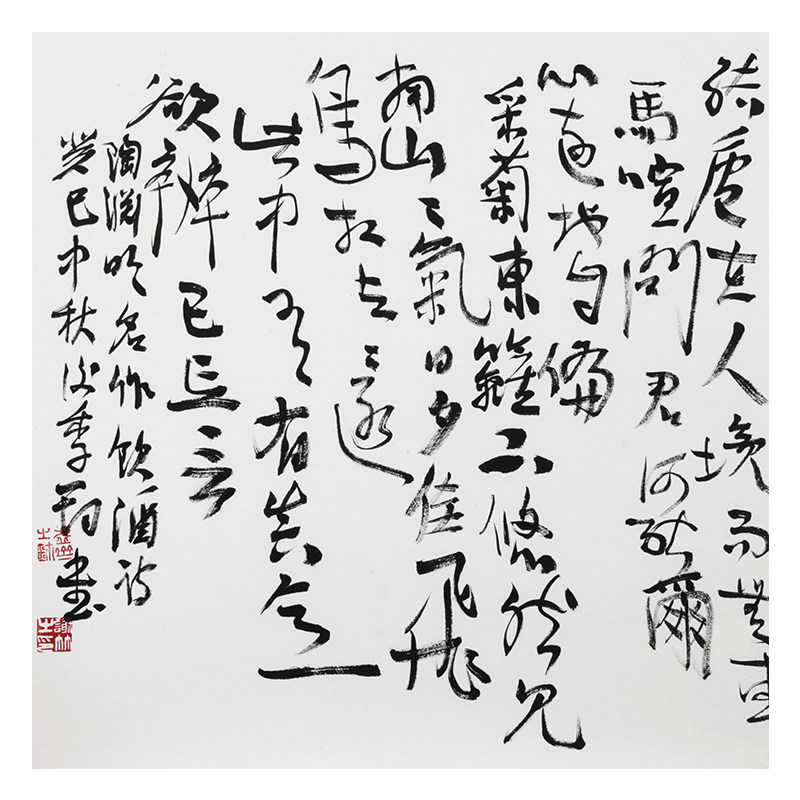 結廬在人境而無車
馬喧問君何能爾
心遠地自偏
采菊東籬下悠然見
南山〻氣日夕佳飛
鳥相与還
此中還有真意
欲辨已忘言
陶淵明名作飲酒詩
癸巳中秋谢季筠書